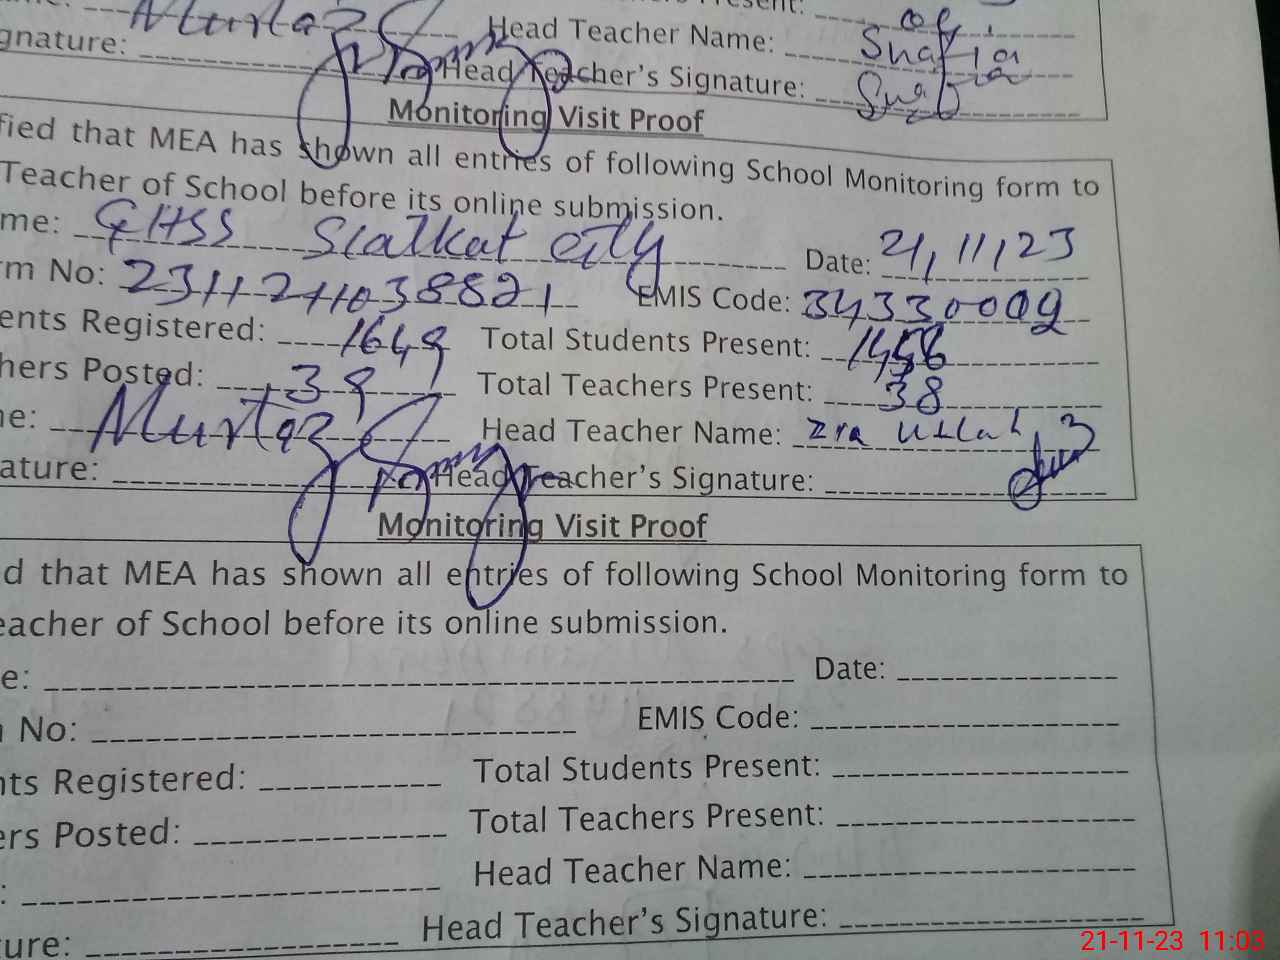 Present:
Murtaz Head Teacher Name: Shafia
gnature: Head Teacher's Signature:
Monitoring Visit Proof
fied that MEA has shown all entries of following School Monitoring form to
Teacher of School before its online submission.
me: GHSS Sialkat City Date: 21,11,23
rm No: 2311211038821 EMIS Code: 34330009
ents Registered: 1649 Total Students Present: 1456
hers Posted: 39 Total Teachers Present: 38
ne: Murtaz Head Teacher Name: Zia Ullah
ature: Head Teacher's Signature:
Monitoring Visit Proof
d that MEA has shown all entries of following School Monitoring form to
eacher of School before its online submission.
e: Date:
No: EMIS Code:
nts Registered: Total Students Present:
ers Posted: Total Teachers Present:
: Head Teacher Name:
ture: Head Teacher's Signature:
21-11-23 11:03